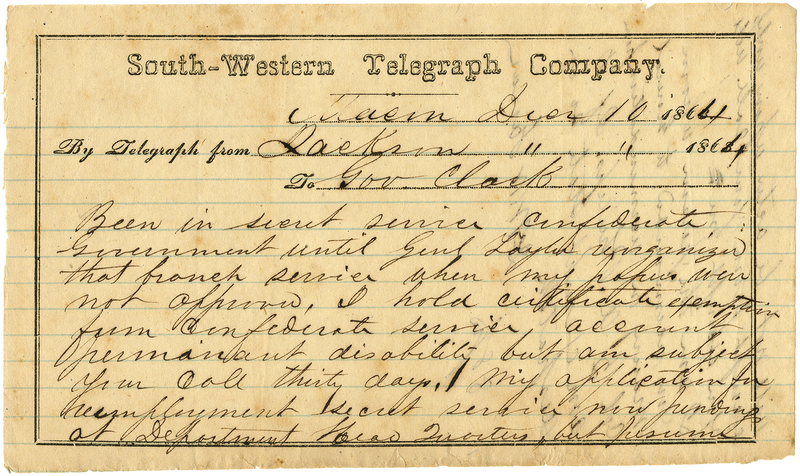 South-Western Telegraph Company.
Macon Decr 10 1864
By Telegraph from Jackson " " 1864
To Gov Clark
Been in secret service confederate
Government until Genl Taylor reorganized
that branch service when my papers were
not approved, I hold certificate exemption
from confederate service, account
permanant disability but am subject
your call thirty days, My application for
reemployment secret service now pending
at Department Head Quarters, but presume